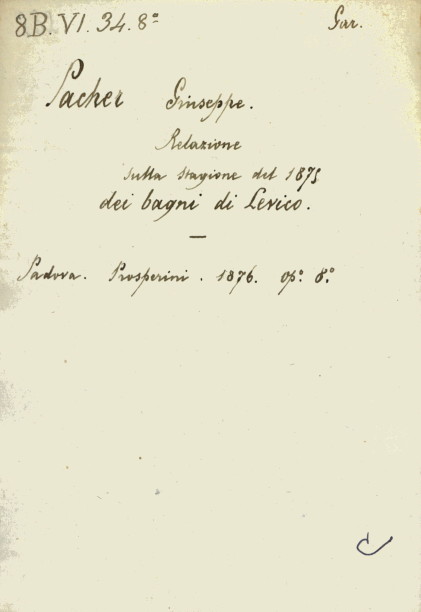 8B. VI. 34. 8º
Gar.
Pacher Giuseppe.
Relazione
sulla stagione del 1875
dei bagni di Levico.
—
Padova. Prosperini. 1876. op.º 8.º